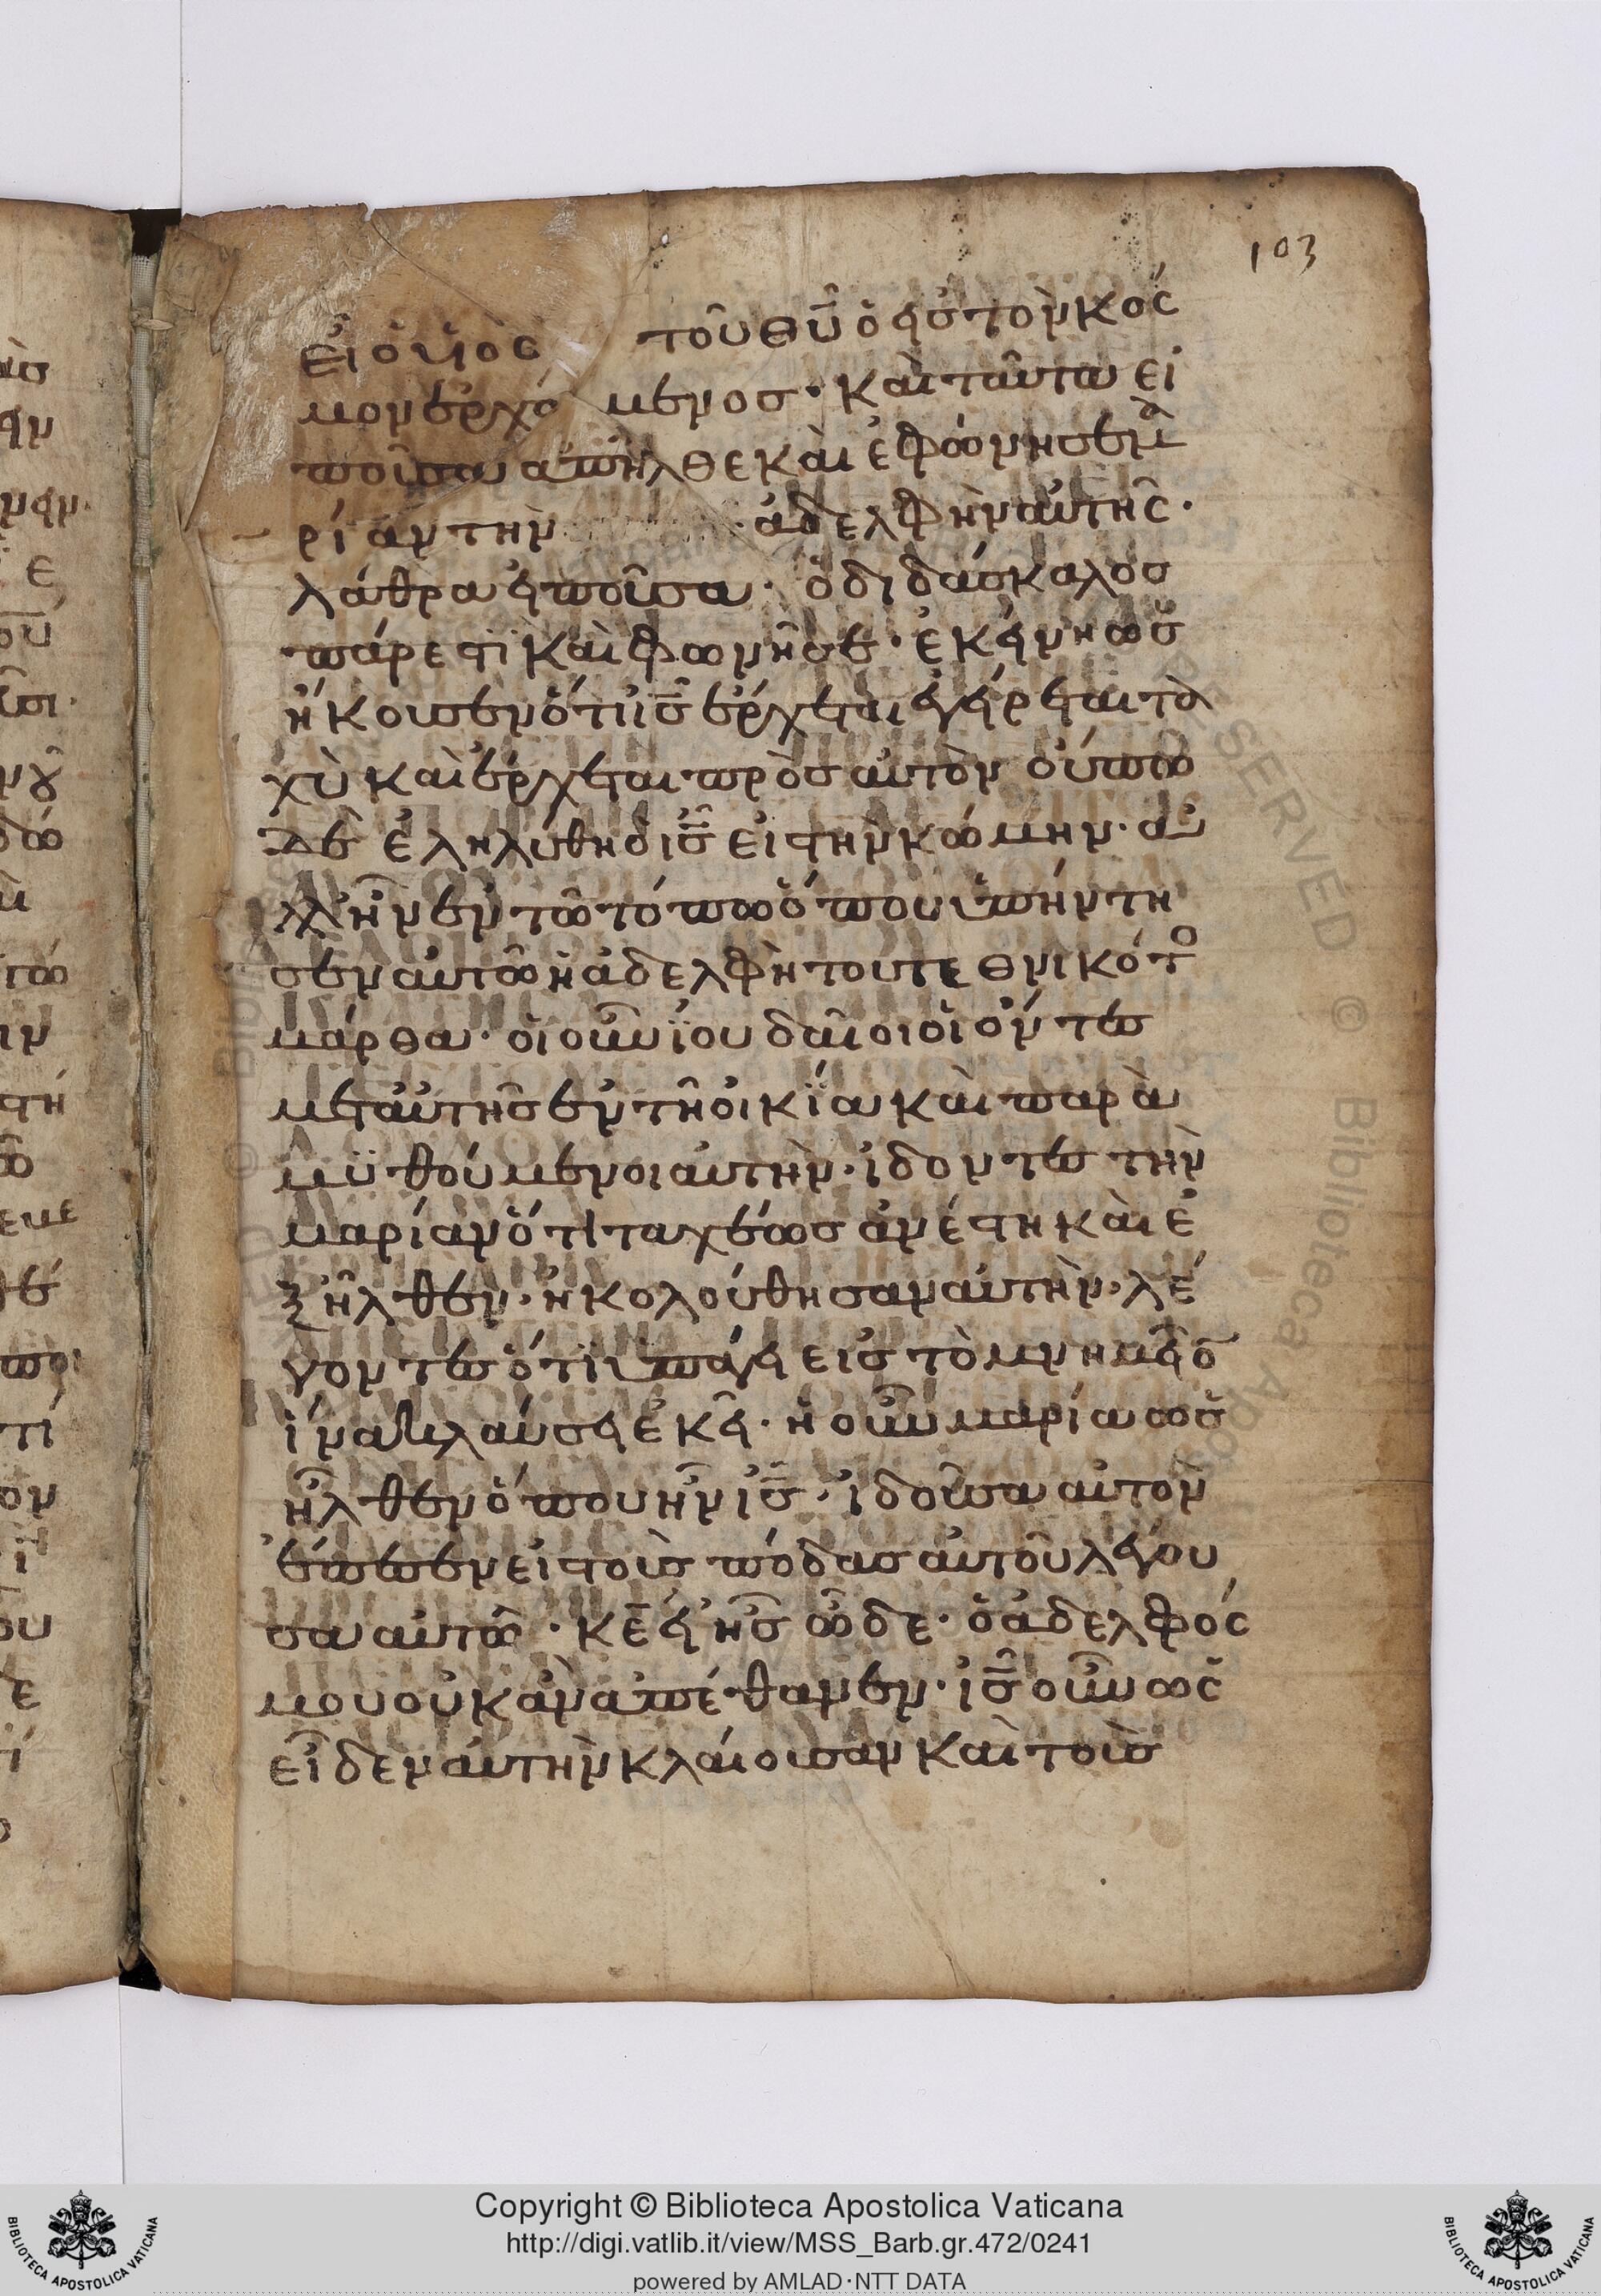 103
εἶ ὁ υἱὸς τοῦ θῦ ὁ εἰς τὸν κόσ
μον ἐρχόμενος· καὶ ταῦτα εἰ
ποῦσα ἀπῆλθε καὶ ἐφώνησε μα
ρίαν τὴν ἀδελφὴν αὐτῆς·
λάθρα εἰποῦσα· ὁ διδάσκαλος
πάρεστι καὶ φωνῆ σε· ἐκείνη ὡς
ἤκουσεν ὅτι ις ἔρχεται ἐγείρεται τα
χὺ καὶ ἔρχεται πρὸς αὐτόν οὔπω
δὲ ἐληλύθη ὁ ις εἰς τὴν κώμην· ἀλ
λ' ἦν ἐν τῶ τόπω ὅπου ὑπήντη
σεν αὐτῶ ἡ ἀδελφὴ του τεθνικότο
μάρθα· οἱ οὖν ἰουδαῖοι οἱ ὄντες
μετ' αὐτῆς ἐν τῆ οἰκία καὶ παρα
μϋθούμενοι αὐτὴν· ἰδοντες τὴν
μαρίαν ὅτι ταχέως ἀνέστη καὶ ἐ
ξῆλθεν· ἠκολούθησαν αὐτὴν· λέ
γοντες ὅτι ὑπάγει εἰς τὸ μνημεῖο
ἵνα κλαύσει ἐκεῖ· ἡ οὖν μαρία ὡς
ἦλθεν ὅπου ἦν ις· ἰδοῦσα αὐτὸν
ἔπεσεν εἰς τοὺς πόδας αὐτοῦ λέγου
σα αὐτῶ· κε εἰ ἦς ὧδε· ὁ ἀδελφός
μου οὐκ ἂν ἀπέθανεν· ις οὖν ὡς
εἶδεν αὐτὴν κλαίουσαν καὶ τοὺς
Copyright © Biblioteca Apostolica Vaticana
http://digi.vatlib.it/view/MSS_Barb.gr.472/0241
powered by AMLAD·NTT DATA
BIBLIOTECA APOSTOLICA VATICANA
BIBLIOTECA APOSTOLICA VATICANA